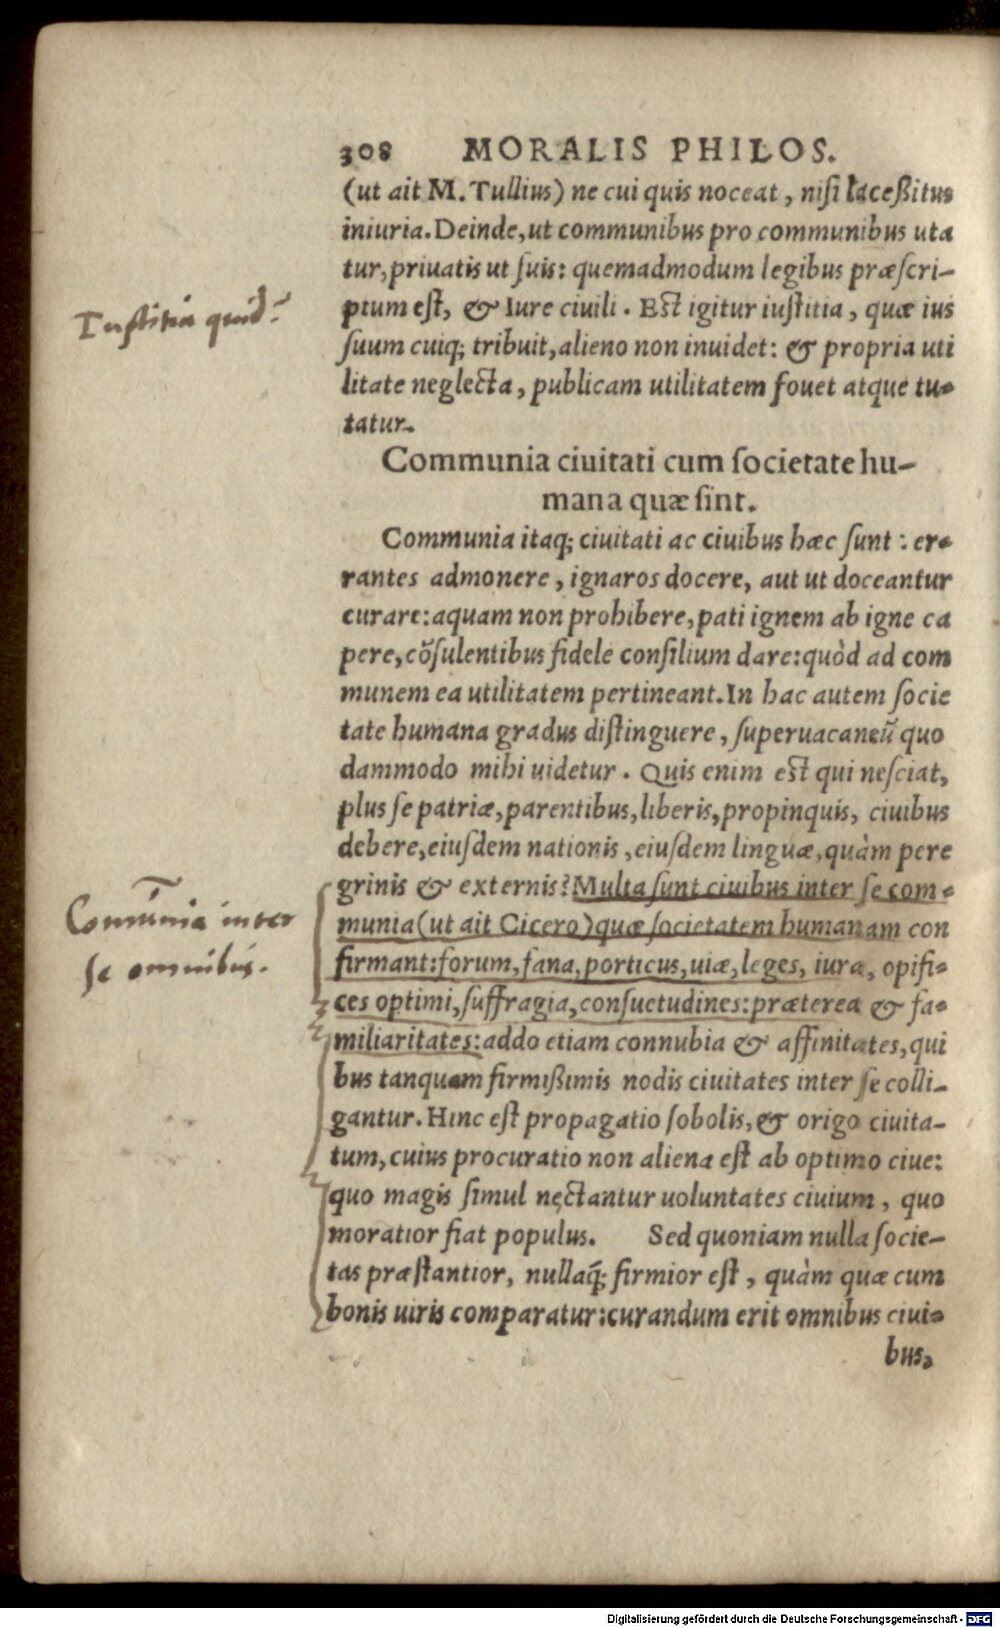 308 MORALIS PHILOS.
(ut ait M. Tullius) ne cui quis noceat, niſi laceßitus
iniuria. Deinde, ut communibus pro communibus uta
tur, priuatis ut ſuis: quemadmodum legibus præſcri-
ptum eſt, & Iure ciuili. Est igitur iuſtitia, quæ ius
ſuum cuiq; tribuit, alieno non inuidet: & propria uti
litate neglecta, publicam utilitatem fouet atque tu-
tatur.
Iustitia quid?
Communia ciuitati cum ſocietate hu-
mana quæ ſint.
Communia itaq; ciuitati ac ciuibus hæc ſunt: er-
rantes admonere, ignaros docere, aut ut doceantur
curare: aquam non prohibere, pati ignem ab igne ca
pere, cõſulentibus fidele conſilium dare: quòd ad com
munem ea utilitatem pertineant. In hac autem ſocie
tate humana gradus diſtinguere, ſuperuacaneũ quo
dammodo mihi uidetur. Quis enim est qui neſciat,
plus ſe patriæ, parentibus, liberis, propinquis, ciuibus
debere, eiuſdem nationis, eiuſdem linguæ, quàm pere
grinis & externis? Multa ſunt ciuibus inter ſe com-
munia (ut ait Cicero) quæ ſocietatem humanam con
firmant: forum, fana, porticus, uiæ, leges, iura, opifi-
ces optimi, ſuffragia, conſuetudines: præterea & fa-
miliaritates: addo etiam connubia & affinitates, qui
bus tanquam firmißimis nodis ciuitates inter ſe colli-
gantur. Hinc eſt propagatio ſobolis, & origo ciuita-
tum, cuius procuratio non aliena eſt ab optimo ciue:
quo magis ſimul nectantur uoluntates ciuium, quo
moratior fiat populus. Sed quoniam nulla ſocie-
tas præſtantior, nullaq́; firmior eſt, quàm quæ cum
bonis uiris comparatur: curandum erit omnibus ciui-
bus,
Comũnia inter
se omnibus.
Digitalisierung gefördert durch die Deutsche Forschungsgemeinschaft - DFG